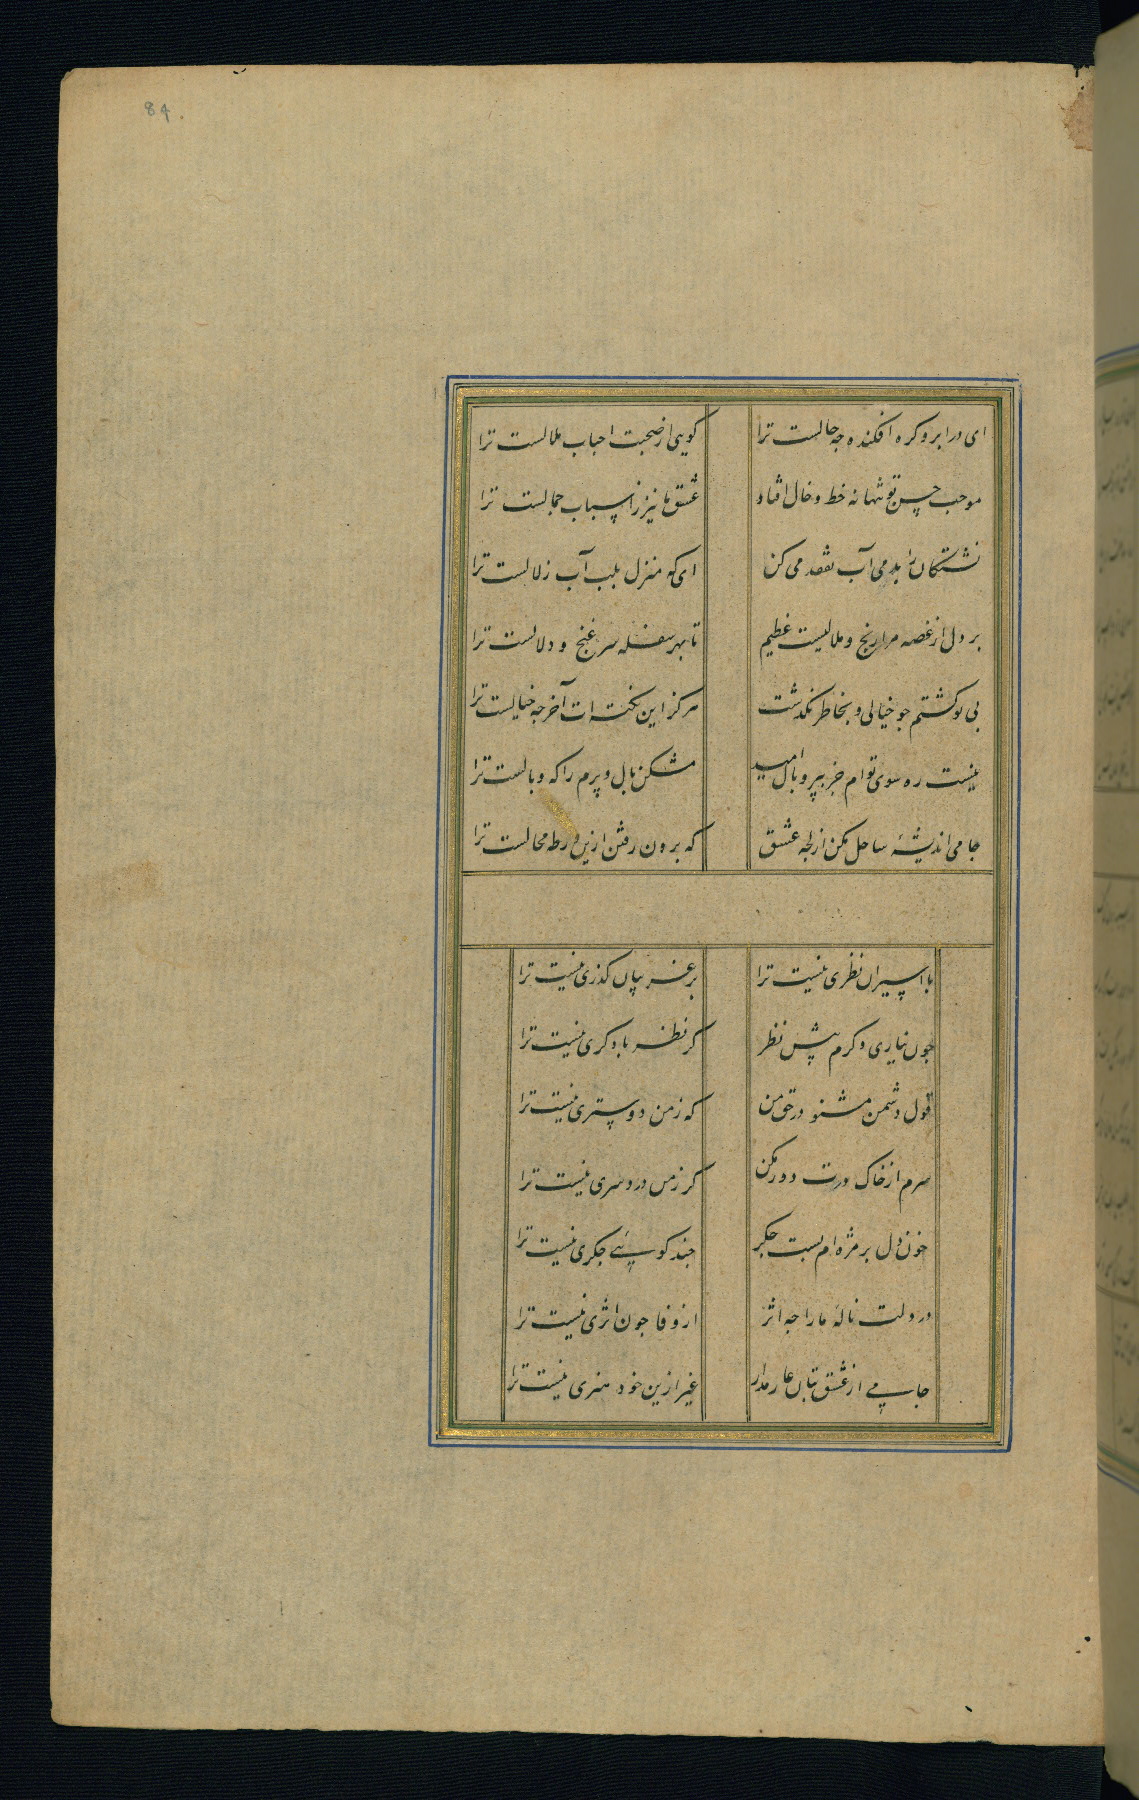 84.
ای در ابرو کره افکنده چه حالست ترا
کویی از صحبت احباب ملالست ترا
موجب حسن تو تنها نه خط و خال افتاد
عشق ما نیز ز اسباب جمالست ترا
تشنکان را بدمی آب تفقد می کن
ای که منزل بلب آب زلالست ترا
بر دل از غصه مرا رنج و ملالیست عظیم
تا بهر سفله سر غنج و دلالست ترا
بی تو کشتم جو خیالی و بخاطر نکذشت
هرکز این نکته ات آخر چه خیالست ترا
نیست ره سوی توام جز بپر و بال امید
مشکن بال و پرم را که وبالست ترا
جامی اندیشهٔ ساحل مکن از لجه عشق
که برون رفتن ازین ورطه محالست ترا
با اسیران نظری نیست ترا
بر غریبان کذری نیست ترا
چون نیاری دکرم پیش نظر
کر نظر با دکری نیست ترا
قول دشمن مشنو در حق من
که ز من دوستری نیست ترا
سرم از خاک درت دور مکن
کر ز من درد سری نیست ترا
خون دل بر مژه ام بست جکر
چند کویی جکری نیست ترا
در دلت نالهٔ ما را چه اثر
از وفا چون اثری نیست ترا
جامی از عشق بتان عار مدار
غیر ازین خود هنری نیست ترا